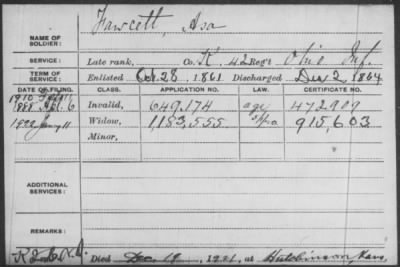 NAME OF SOLDIER: Fawcett, Asa
SERVICE: Late rank, Co. K, 42 Reg't Ohio Inf.
TERM OF SERVICE: Enlisted Oct. 28, 1861 Discharged Dec 2 1864
DATE OF FILING. CLASS. APPLICATION NO. LAW. CERTIFICATE NO.
1910
1888 6 Invalid, 649,174 age 472909
1922 Jany 11 Widow, 1,183,555 915,603
Minor,
ADDITIONAL SERVICES:
REMARKS:
Died Dec. 19, 1921, at Hutchinson, Kans.